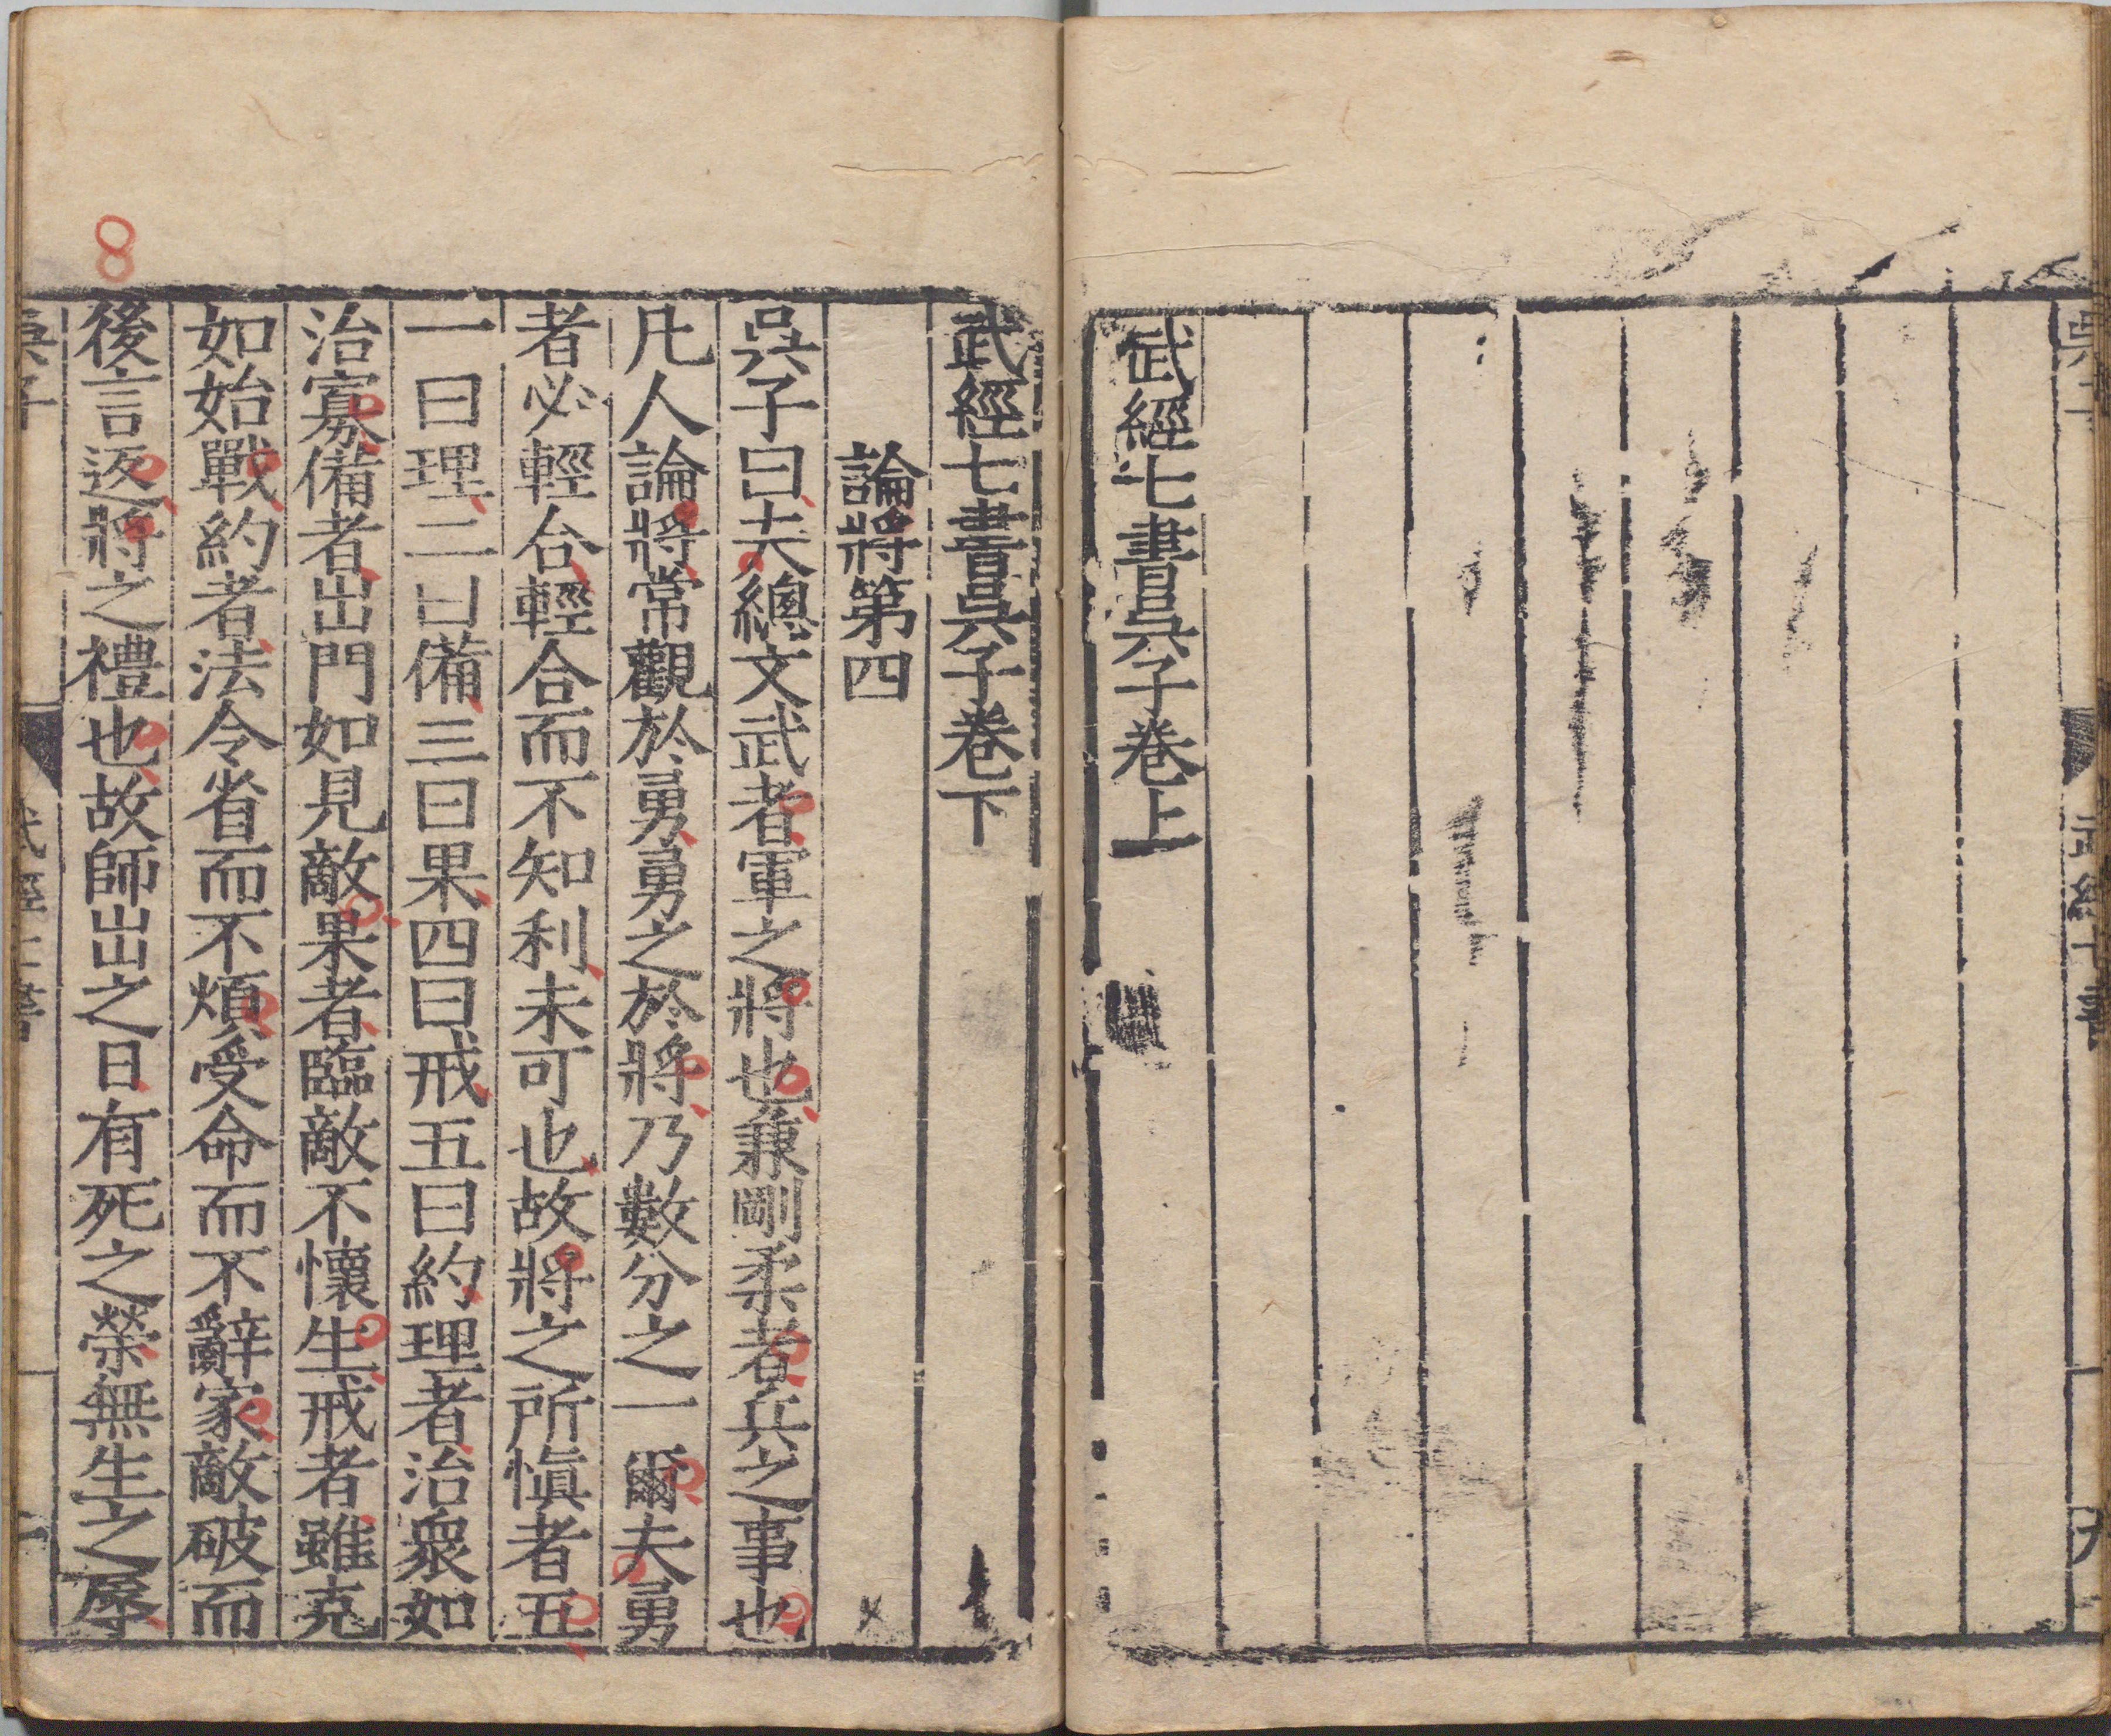 武經七書吳子卷上
武經七書吳子卷下
論將第四
吳子曰夫總文武者軍之將也兼剛柔者兵之事也
凡人論將常觀於勇勇之於將乃數分之一爾夫勇
者必輕合輕合而不知利未可也故將之所愼者五
一曰理二曰備三曰果四曰戒五曰約理者治衆如
治寡備者出門如見敵果者臨敵不懷生戒者雖克
如始戰約者法令省而不煩受命而不辭家敵破而
後言返將之禮也故師出之日有死之榮無生之辱